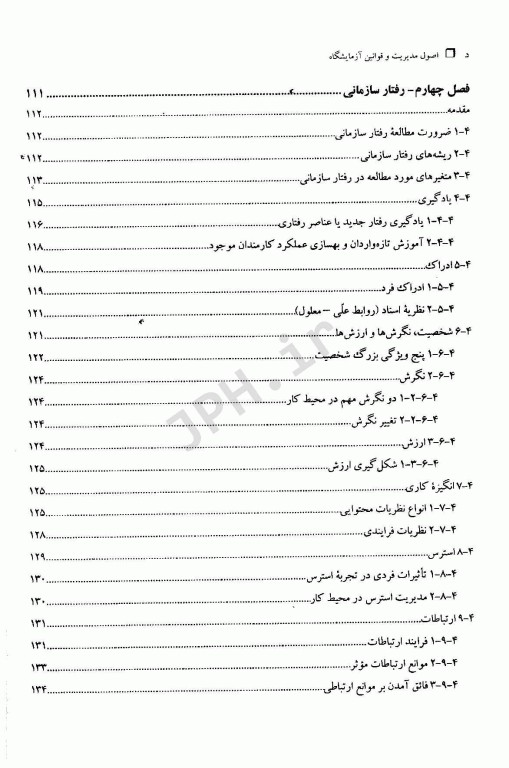 د ❒ اصول مدیریت و قوانین آزمایشگاه
فصل چهارم- رفتار سازمانی ..... ۱۱۱
مقدمه ..... ۱۱۲
۴-۱ ضرورت مطالعهٔ رفتار سازمانی ..... ۱۱۲
۴-۲ ریشه‌های رفتار سازمانی ..... ۱۱۲
۴-۳ متغیرهای مورد مطالعه در رفتار سازمانی ..... ۱۱۳
۴-۴ یادگیری ..... ۱۱۵
۴-۴-۱ یادگیری رفتار جدید یا عناصر رفتاری ..... ۱۱۶
۴-۴-۲ آموزش تازه‌واردان و بهسازی عملکرد کارمندان موجود ..... ۱۱۸
۴-۵ ادراک ..... ۱۱۸
۴-۵-۱ ادراک فرد ..... ۱۱۹
۴-۵-۲ نظریهٔ اسناد (روابط علّی – معلول) ..... ۱۲۱
۴-۶ شخصیت، نگرش‌ها و ارزش‌ها ..... ۱۲۱
۴-۶-۱ پنج ویژگی بزرگ شخصیت ..... ۱۲۲
۴-۶-۲ نگرش ..... ۱۲۴
۴-۶-۲-۱ دو نگرش مهم در محیط کار ..... ۱۲۴
۴-۶-۲-۲ تغییر نگرش ..... ۱۲۴
۴-۶-۳ ارزش ..... ۱۲۴
۴-۶-۳-۱ شکل‌گیری ارزش ..... ۱۲۵
۴-۷ انگیزهٔ کاری ..... ۱۲۵
۴-۷-۱ انواع نظریات محتوایی ..... ۱۲۵
۴-۷-۲ نظریات فرایندی ..... ۱۲۸
۴-۸ استرس ..... ۱۲۹
۴-۸-۱ تأثیرات فردی در تجربهٔ استرس ..... ۱۳۰
۴-۸-۲ مدیریت استرس در محیط کار ..... ۱۳۰
۴-۹ ارتباطات ..... ۱۳۱
۴-۹-۱ فرایند ارتباطات ..... ۱۳۱
۴-۹-۲ موانع ارتباطات مؤثر ..... ۱۳۳
۴-۹-۳ فائق آمدن بر موانع ارتباطی ..... ۱۳۴
JPH.ir